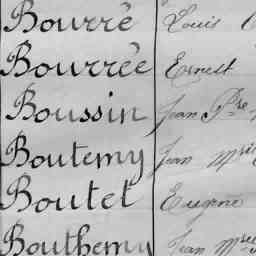 Bourré Louis
Bourrée Ernest
Boussin Jean Pre
Boutemy Jean Mrie
Boutet Eugène
Bouthemy Jean Mrie